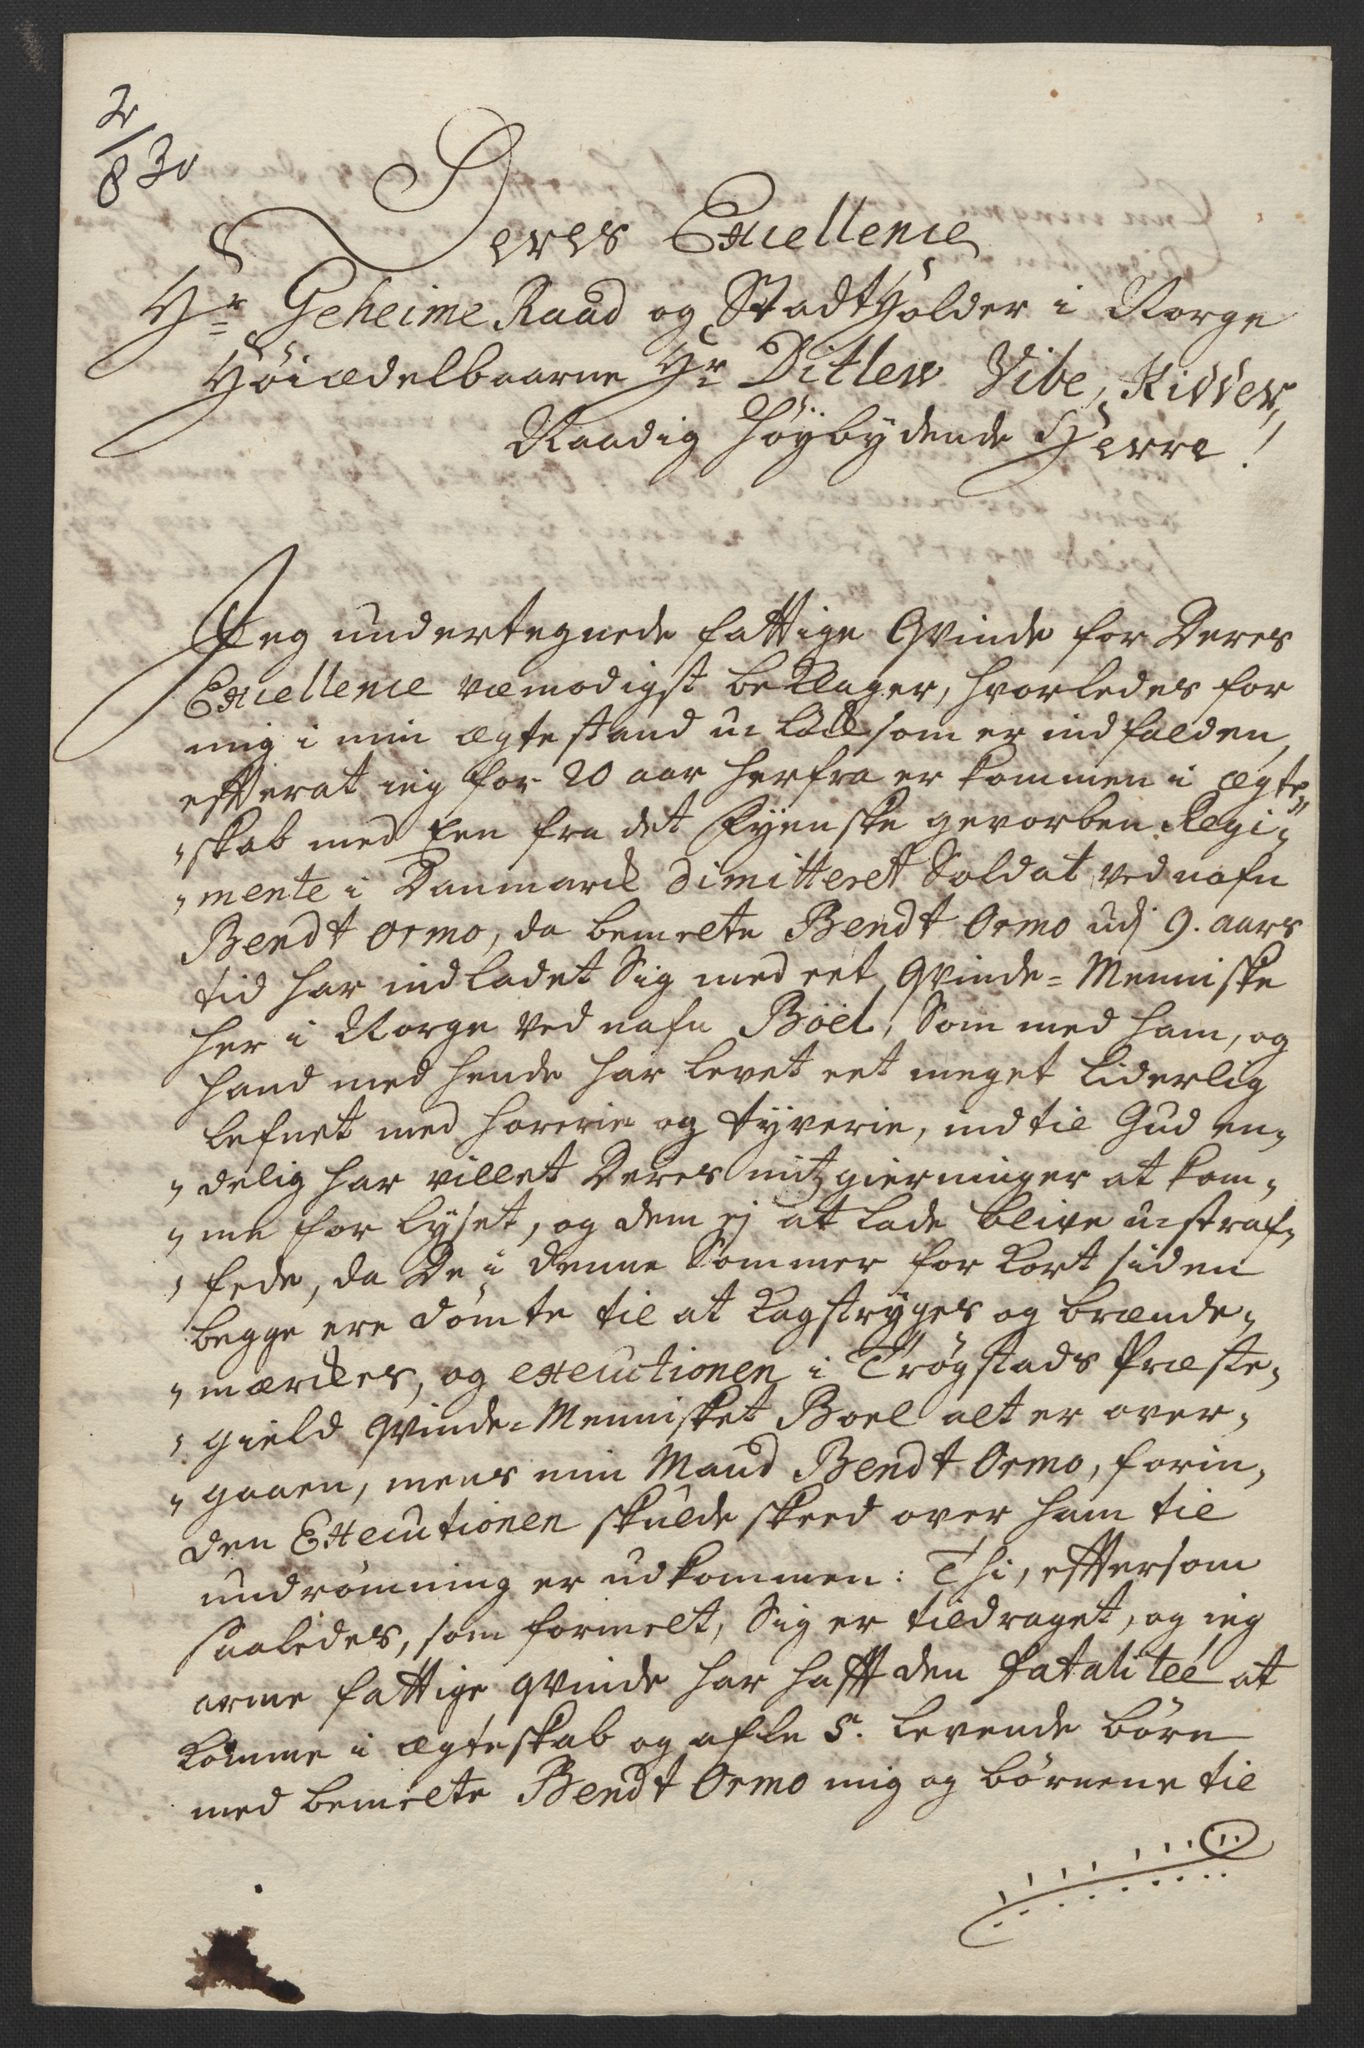 2/8 30
Deres Excellence
Hr Geheime Raad og StadtHolder i Norge
Höiædelbaarne Hr Ditlew Vibe, Ridder,
Naadig Höÿbÿdende Herre!
Jeg undertegnede fattige Qvinde for Deres
Excellence væmodigst beklager, hvorledes for
mig i min ægtestand u-lÿkke som er indfalden,
efterat ieg for 20 aar herfra er kommen i ægte„
„skab med Een fra det Fÿenske gevorben Regi„
„mente i Danmarck dimitteret Soldat ved nafn
Bendt Ormo, da bemelte Bendt Ormo udj 9. aars
tid har indladet Sig med eet Qvinde=Menniske
her i Norge ved nafn Böel, Som med ham, og
hand med hende har levet eet meget liderlig
lefnet med horerie og tÿverie, indtil Gud en„
„delig har villet Deres mitzgierninger at kom„
„me for lÿset, og dem ej at lade blive u-straf„
„fede, da De i denne Sommer for kort siden
begge ere dömte til at kagstrÿges og brænde„
„mærckes, og executionen i Trögstads Præste„
„gield Qvinde=Mennisket Boel alt er over„
„gaaen, mens min Mand Bendt Ormo, forin„
den Executionen skulde skeed over ham til
undrömning er udkommen: Thi, eftersom
saaledes, som formelt, Sig er tildraget, og ieg
arme fattige qvinde har hafft den fatalitee at
komme i ægteskab og afle 5. levende börn
med bemelte Bendt Ormo mig og börnene til